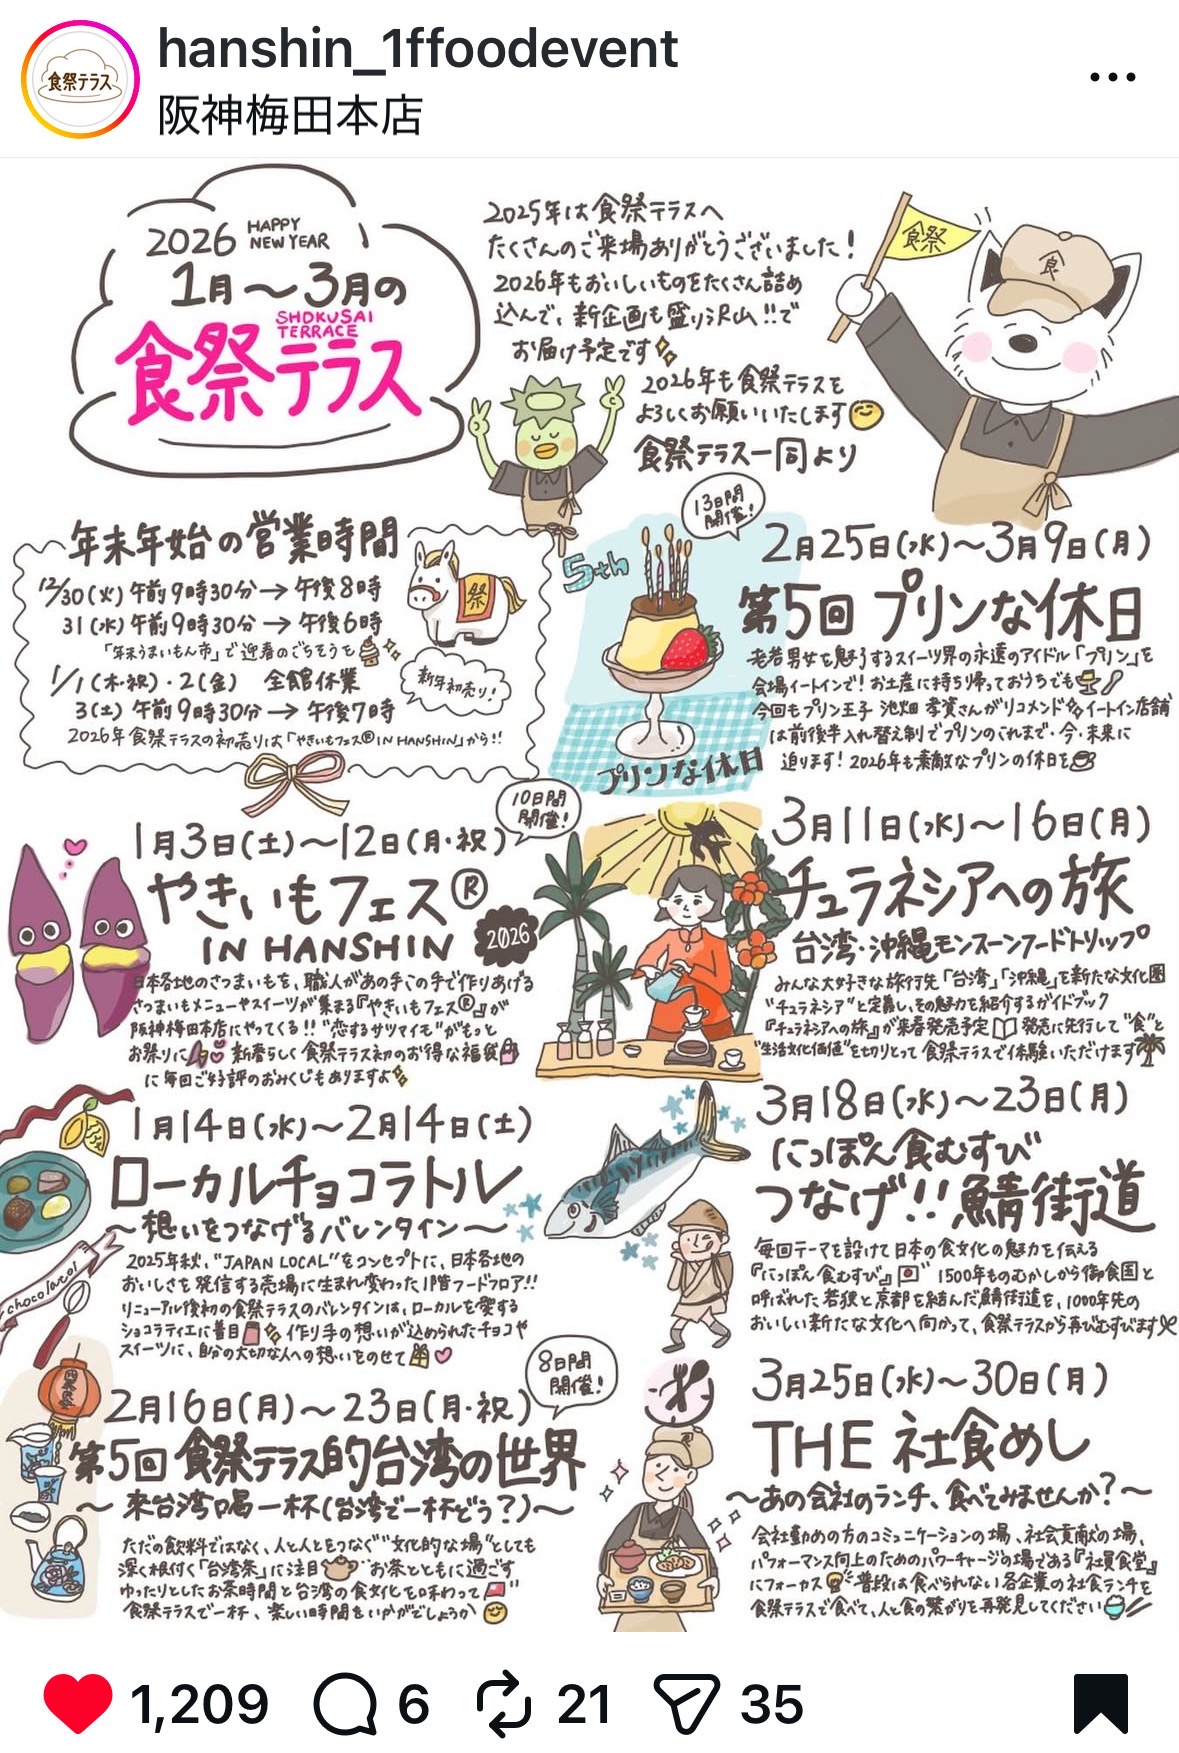 食祭テラス
hanshin_1ffoodevent
阪神梅田本店
2026 HAPPY NEW YEAR
1月～3月の
SHOKUSAI TERRACE
食祭テラス
2025年は食祭テラスへ
たくさんのご来場ありがとうございました！
2026年もおいしいものをたくさん詰め
込んで、新企画も盛り沢山!!で
お届け予定です
2026年も食祭テラスを
よろしくお願いいたします
食祭テラス一同より
食祭
食
年末年始の営業時間
12/30(火)午前9時30分→午後8時
31(水)午前9時30分→午後6時
「年末うまいもん市」で迎春のごちそうを
1/1(木・祝)・2(金) 全館休業
3(土)午前9時30分→午後7時
2026年食祭テラスの初売りは「やきいもフェス®IN HANSHIN」から!!
祭
新年初売り！
1月3日(土)～12日(月・祝)
10日間開催！
やきいもフェス®
IN HANSHIN 2026
日本各地のさつまいもを、職人があの手この手で作りあげる
さつまいもメニューやスイーツが集まる『やきいもフェス®』が
阪神梅田本店にやってくる!! "恋するサツマイモ"がもっと
お祭りに 新春らしく食祭テラス初のお得な福袋
に毎回ご好評のおみくじもありますよ
1月14日(水)～2月14日(土)
ローカルチョコラトル
～想いをつなげるバレンタイン～
2025年秋、"JAPAN LOCAL"をコンセプトに、日本各地の
おいしさを発信する売場に生まれ変わった1階フードフロア!!
リニューアル後初の食祭テラスのバレンタインは、ローカルを愛する
ショコラティエに着目 作り手の想いが込められたチョコや
スイーツに、自分の大切な人への想いをのせて
chocolate!
2月16日(月)～23日(月・祝)
8日間開催！
第5回食祭テラス的台湾の世界
～来台湾喝一杯(台湾で一杯どう？)～
ただの飲料ではなく、人と人とをつなぐ"文化的な場"としても
深く根付く「台湾茶」に注目 お茶とともに過ごす
ゆったりとしたお茶時間と台湾の食文化を味わって
食祭テラスで一杯、楽しい時間をいかがでしょうか
13日間開催！
5th
プリンな休日
2月25日(水)～3月9日(月)
第5回 プリンな休日
老若男女を魅了するスイーツ界の永遠のアイドル「プリン」を
会場イートインで！お土産に持ち帰っておうちでも
今回もプリン王子 池畑 孝資さんがリコメンド イートイン店舗
は前後半入れ替え制でプリンのこれまで・今・未来に
迫ります！2026年も素敵なプリンの休日を
3月11日(水)～16日(月)
チュラネシアへの旅
台湾・沖縄モンスーンフードトリップ
みんな大好きな旅行先「台湾」「沖縄」を新たな文化圏
"チュラネシア"と定義し、その魅力を紹介するガイドブック
『チュラネシアへの旅』が来春発売予定 発売に先行して"食"と
"生活文化価値"を切りとって食祭テラスで体験いただけます
3月18日(水)～23日(月)
にっぽん食むすび
つなげ!!鯖街道
毎回テーマを設けて日本の食文化の魅力を伝える
『にっぽん食むすび』 1500年ものむかしから御食国と
呼ばれた若狭と京都を結んだ鯖街道を、1000年先の
おいしい新たな文化へ向かって、食祭テラスから再びむすびます
3月25日(水)～30日(月)
THE 社食めし
～あの会社のランチ、食べてみませんか？～
会社勤めの方のコミュニケーションの場、社会貢献の場、
パフォーマンス向上のためのパワーチャージの場である『社員食堂』
にフォーカス 普段は食べられない各企業の社食ランチを
食祭テラスで食べて、人と食の繋がりを再発見してください
1,209 6 21 35